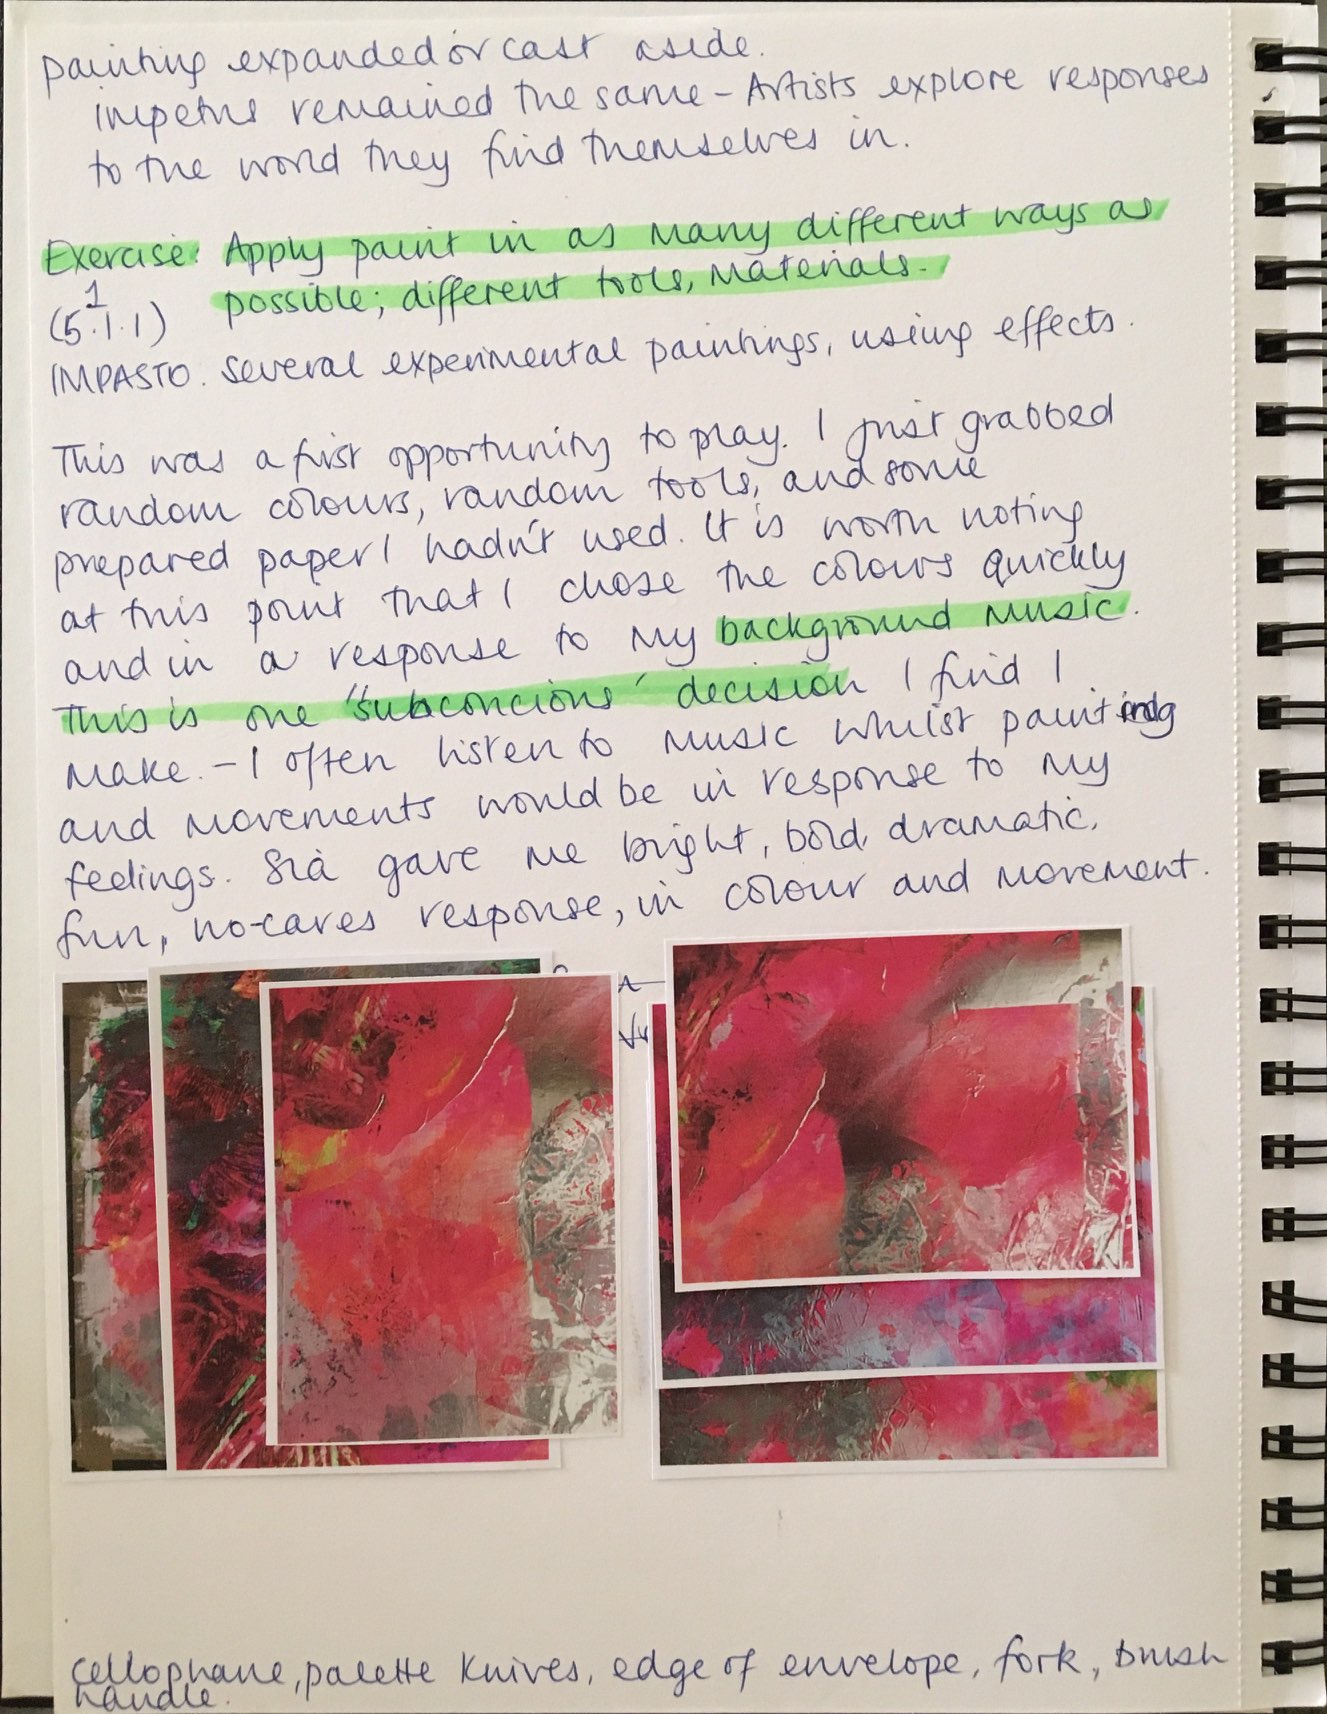 painting expanded or cast aside.
impetus remained the same – Artists explore responses
to the world they find themselves in.
Exercise: Apply paint in as many different ways as
1 possible; different tools, materials.
(5.1.1)
IMPASTO. Several experimental paintings, using effects.
This was a first opportunity to play. I just grabbed
random colours, random tools, and some
prepared paper I hadn't used. It is worth noting
at this point that I chose the colours quickly
and in a response to my background music.
This is one "subconcious" decision I find I
make. – I often listen to music whilst painting
and movements would be in response to my
feelings. Sia gave me bright, bold, dramatic,
fun, no-cares response, in colour and movement.
cellophane, palette knives, edge of envelope, fork, brush
handle.